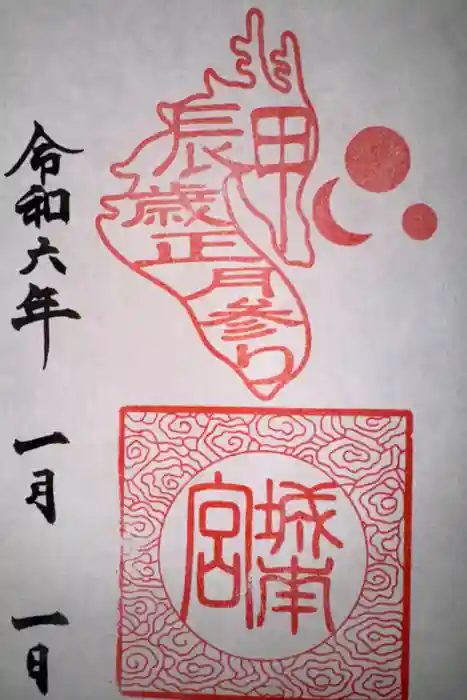 甲
辰歳正月参り
城南
宮
令和六年 一月 一日